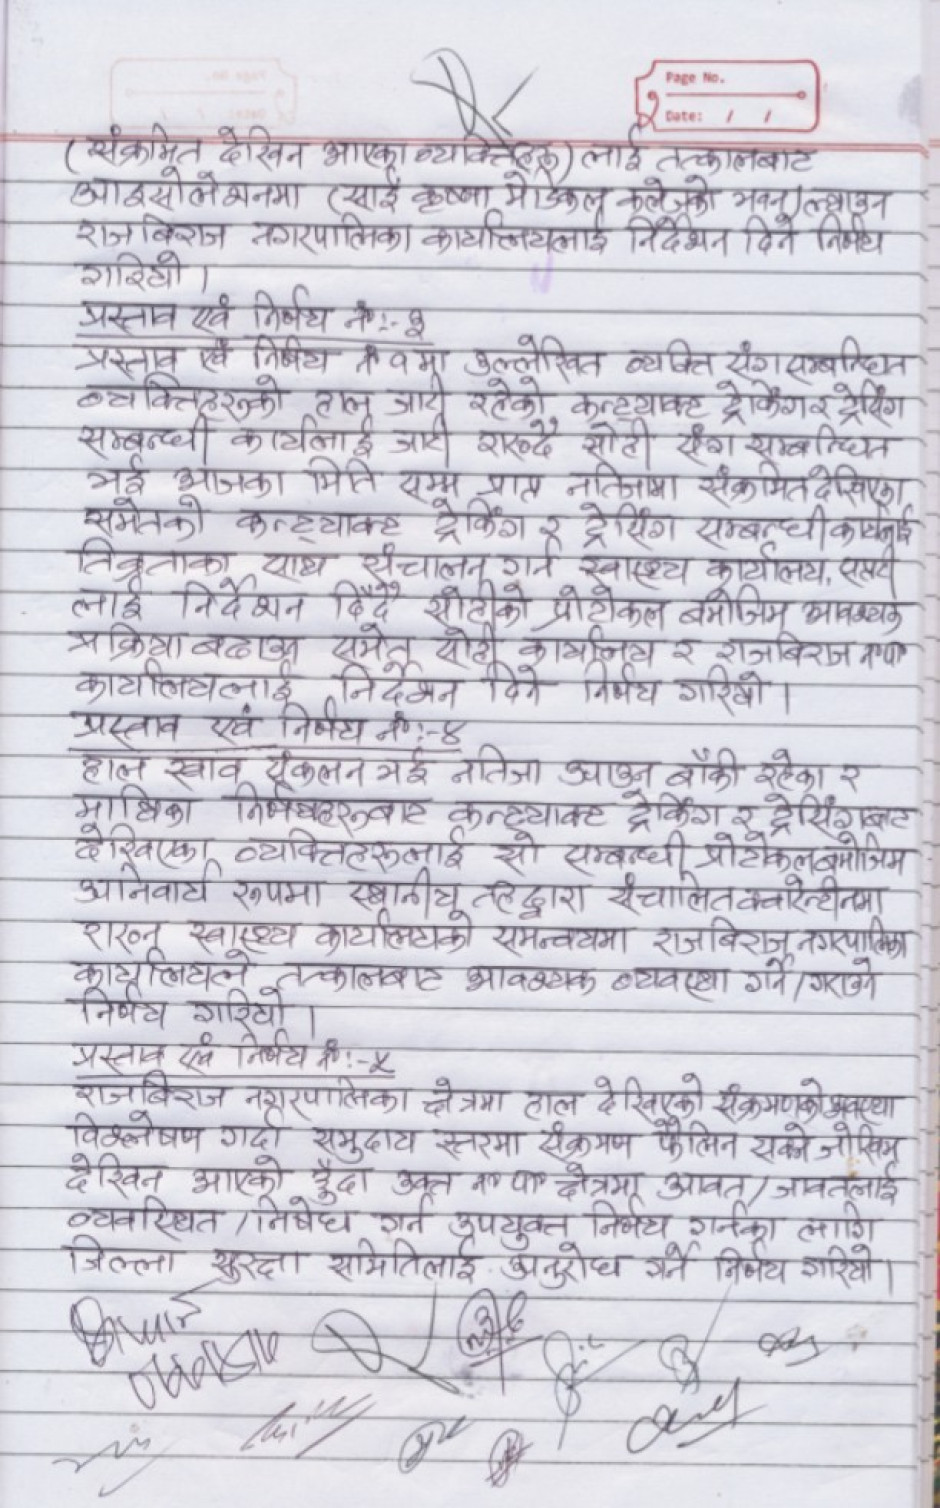 Page No.
Date: / /
(संक्रमित देखिन आएका व्यक्तिहरू) लाई तत्कालबाट
आइसोलेशनमा (साई कृष्णा मेडिकल कलेजको भवन) ल्याउन
राजबिराज नगरपालिका कार्यालयलाई निर्देशन दिने निर्णय
गरियो ।
प्रस्ताव एवं निर्णय नं॰:- ३
प्रस्ताव एवं निर्णय नं १ मा उल्लेखित व्यक्ति संग सम्बन्धित
व्यक्तिहरूको हाल जारी रहेको कन्ट्याक्ट ट्रेकिंग र ट्रेसिंग
सम्बन्धी कार्यलाई जारी राख्दै सोही संग सम्बन्धित
भई आजका मिति सम्म प्राप्त नतिजामा संक्रमित देखिएका
समेतको कन्ट्याक्ट ट्रेकिंग र ट्रेसिंग सम्बन्धी कार्यलाई
तिब्रताका साथ संचालन गर्न स्वास्थ्य कार्यालय, सप्तरी
लाई निर्देशन दिँदै सोहीको प्रोटोकल बमोजिम आवश्यक
प्रक्रिया बढाउन समेत सोही कार्यालय र राजबिराज न॰पा॰
कार्यालयलाई निर्देशन दिने निर्णय गरियो ।
प्रस्ताव एवं निर्णय नं॰:- ४
हाल स्वाव संकलन भई नतिजा आउन बाँकी रहेका र
माथिका निर्णयहरूबाट कन्ट्याक्ट ट्रेकिंग र ट्रेसिंगबाट
देखिएका व्यक्तिहरूलाई सो सम्बन्धी प्रोटोकल बमोजिम
अनिवार्य रूपमा स्थानीय तहद्वारा संचालित क्वारेन्टीनमा
राख्न स्वास्थ्य कार्यालयको समन्वयमा राजबिराज नगरपालिका
कार्यालयले तत्कालबाट आवश्यक व्यवस्था गर्ने/गराउने
निर्णय गरियो ।
प्रस्ताव एवं निर्णय नं॰:- ५
राजबिराज नगरपालिका क्षेत्रमा हाल देखिएको संक्रमणको अवस्था
विश्लेषण गर्दा समुदाय स्तरमा संक्रमण फैलिन सक्ने जोखिम
देखिन आएको हुँदा उक्त न॰पा॰ क्षेत्रमा आवत/जावतलाई
व्यवस्थित/निषेध गर्न उपयुक्त निर्णय गर्नका लागि
जिल्ला सुरक्षा समितिलाई अनुरोध गर्ने निर्णय गरियो ।